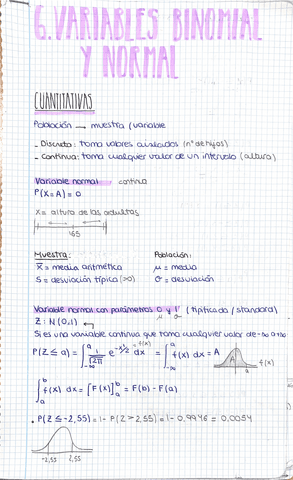 6. VARIABLES BINOMIAL
Y NORMAL
CUANTITATIVAS
Población → muestra / variable
- Discreta: toma valores aislados (nº de hijos)
- Continua: toma cualquier valor de un intervalo (altura)
Variable normal continua
P(X=A) = 0
X= altura de los adultos
165
Muestra: Población:
x̄ = media aritmética μ = media
S = desviación típica (>0) σ = desviación
Variable normal con parámetros 0 y 1 (tipificada / standard)
μ σ
Z: N(0,1)
Si es una variable continua que toma cualquier valor de -∞ a +∞
P(Z ≤ a) = ∫_{-∞}^{a} 1/√(2π) e^{-x²/2} dx = ∫_{-∞}^{a} f(x) dx = A
f(x)
A
a
f(x)
∫_{a}^{b} f(x) dx = [F(x)]_{a}^{b} = F(b) - F(a)
• P(Z ≤ -2,55) = 1 - P(Z > 2,55) = 1 - 0,9946 = 0,0054
-2,55 2,55